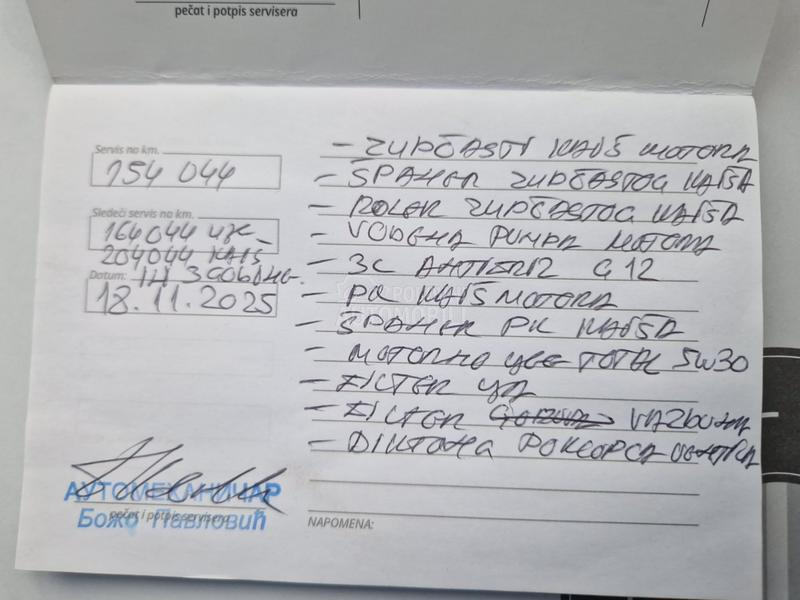 pečat i potpis servisera
Servis na km.
154 044
Sledeći servis na km.
164044
204044 KAIŠ
Datum:
18.11.2025
- ZUPČASTI KAIŠ MOTORA
- ŠPANER ZUPČASTOG KAIŠA
- ROLER ZUPČASTOG KAIŠA
- VODENA PUMPA MOTORA
- 3L ANTIFRIZ G12
- PK KAIŠ MOTORA
- ŠPANER PK KAIŠA
- MOTORNO ULJE TOTAL 5W30
- FILTER ULJA
- FILTER VAZDUHA
АУТОМЕХАНИЧАР
pečat i potpis servisera
Божо Павловић
NAPOMENA: